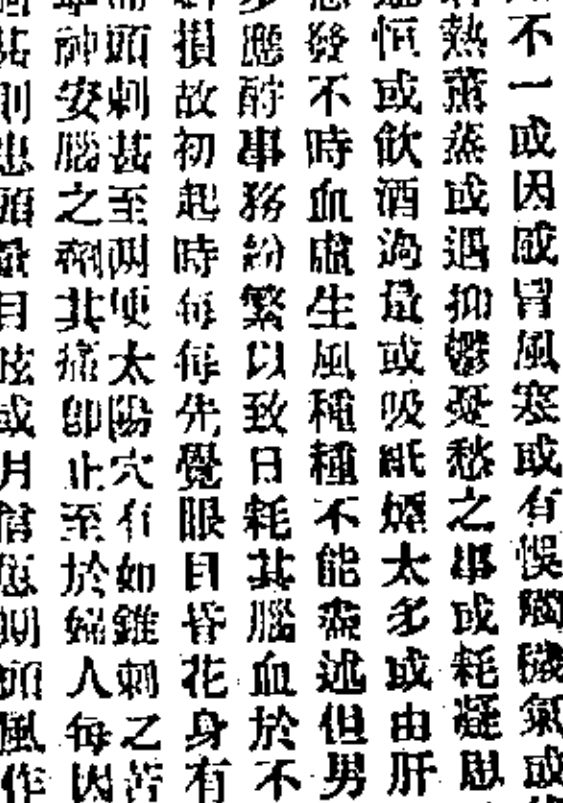 不一或因感冒風寒或有悞觸穢氣或
熱薰蒸或遇抑鬱憂愁之事或耗凝思
恒或飲酒過量或吸紙煙太多或由肝
發不時血虛生風種種不能盡述但男
應酧事務紛繁以致日耗其腦血於不
損故初起時每每先覺眼目昏花身有
頭刺甚至兩便太陽穴有如錐刺之苦
神安腦之劑其痛即止至於婦人每因
甚則患頭暈目眩或月信愆期頭風作